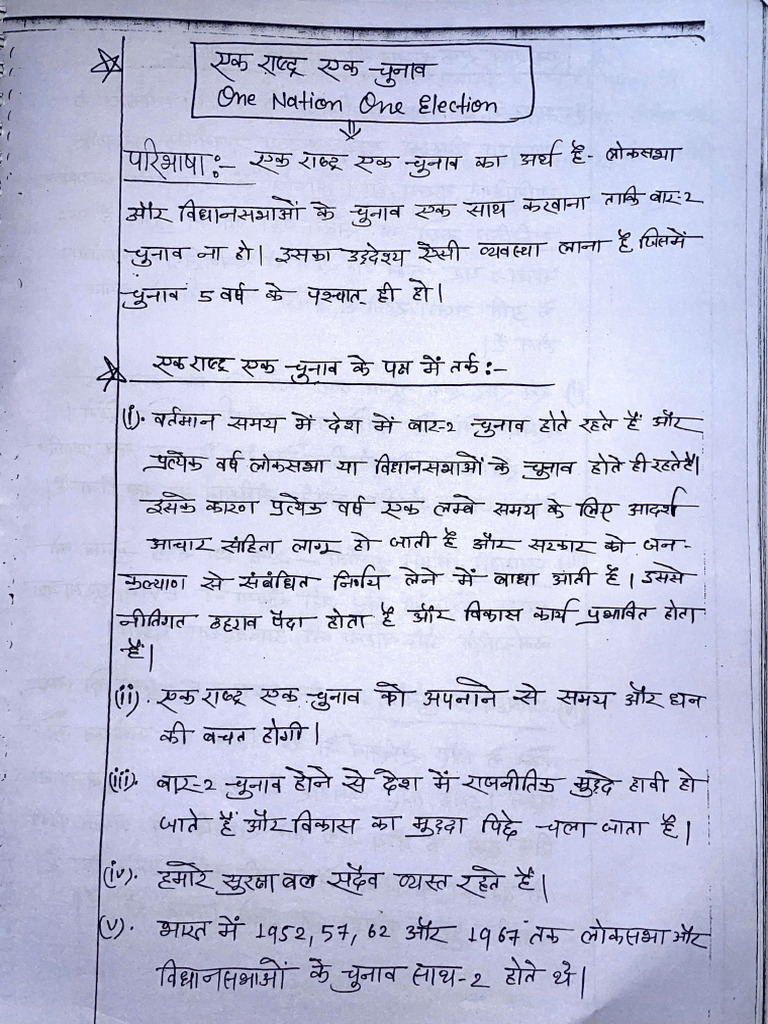 एक राष्ट्र एक चुनाव
One Nation One Election
परिभाषाः- एक राष्ट्र एक चुनाव का अर्थ है- लोकसभा
और विधानसभाओं के चुनाव एक साथ करवाना ताकि बार-2
चुनाव ना हो। इसका उद्देश्य ऐसी व्यवस्था लाना है जिसमें
चुनाव 5 वर्ष के पश्चात् ही हो।
एक राष्ट्र एक चुनाव के पक्ष में तर्क :-
(i). वर्तमान समय में देश में बार-2 चुनाव होते रहते हैं और
प्रत्येक वर्ष लोकसभा या विधानसभाओं के चुनाव होते ही रहते है।
इसके कारण प्रत्येक वर्ष एक लम्बे समय के लिए आदर्श
आचार संहिता लागू हो जाती है और सरकार को जन-
कल्याण से संबंधित निर्णय लेने में बाधा आती है। उससे
नीतिगत ठहराव पैदा होता है और विकास कार्य प्रभावित होता
है।
(ii). एक राष्ट्र एक चुनाव को अपनाने से समय और धन
की बचत होगी।
(iii). बार-2 चुनाव होने से देश में राजनीतिक मुद्दे हावी हो
जाते हैं और विकास का मुद्दा पिछे चला जाता है।
(iv). हमारे सुरक्षा बल सदैव व्यस्त रहते हैं।
(v). भारत में 1952, 57, 62 और 1967 तक लोकसभा और
विधानसभाओं के चुनाव साथ-2 होते थे।